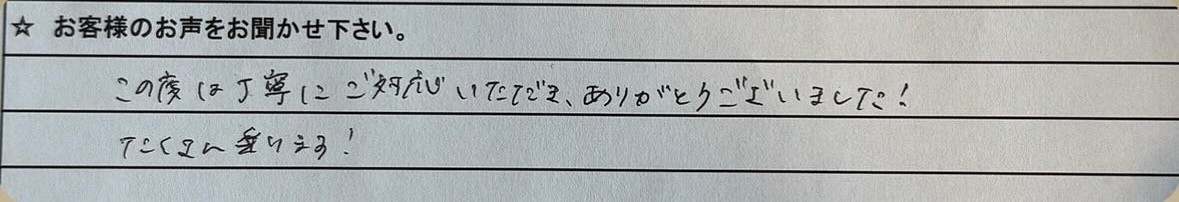 ☆ お客様のお声をお聞かせ下さい。
この度は丁寧にご対応いただき、ありがとうございました！
たくさん乗ります！